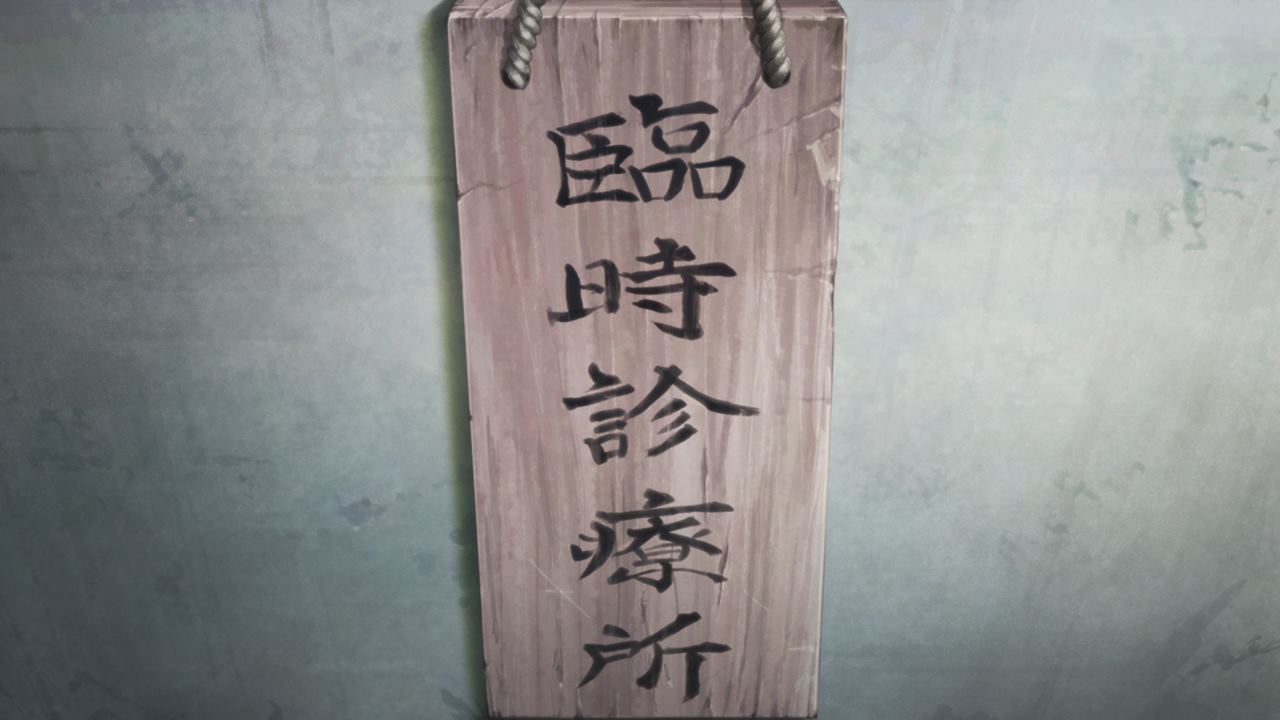 臨時診療所